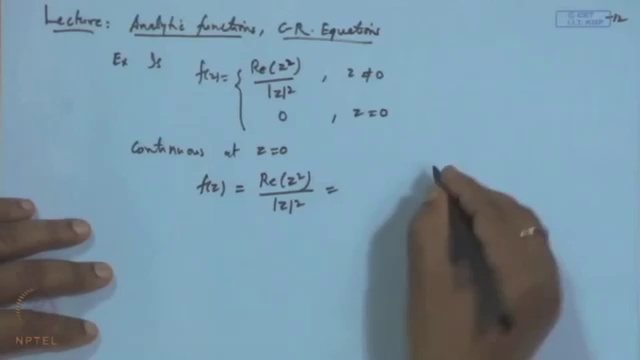 Lecture: Analytic functions, C-R. Equations
C-CET
I.I.T. KGP
Ex Is f(z) = { Re(z²) / |z|² , z ≠ 0
0 , z = 0
Continuous at z = 0
f(z) = Re(z²) / |z|² =
NPTEL